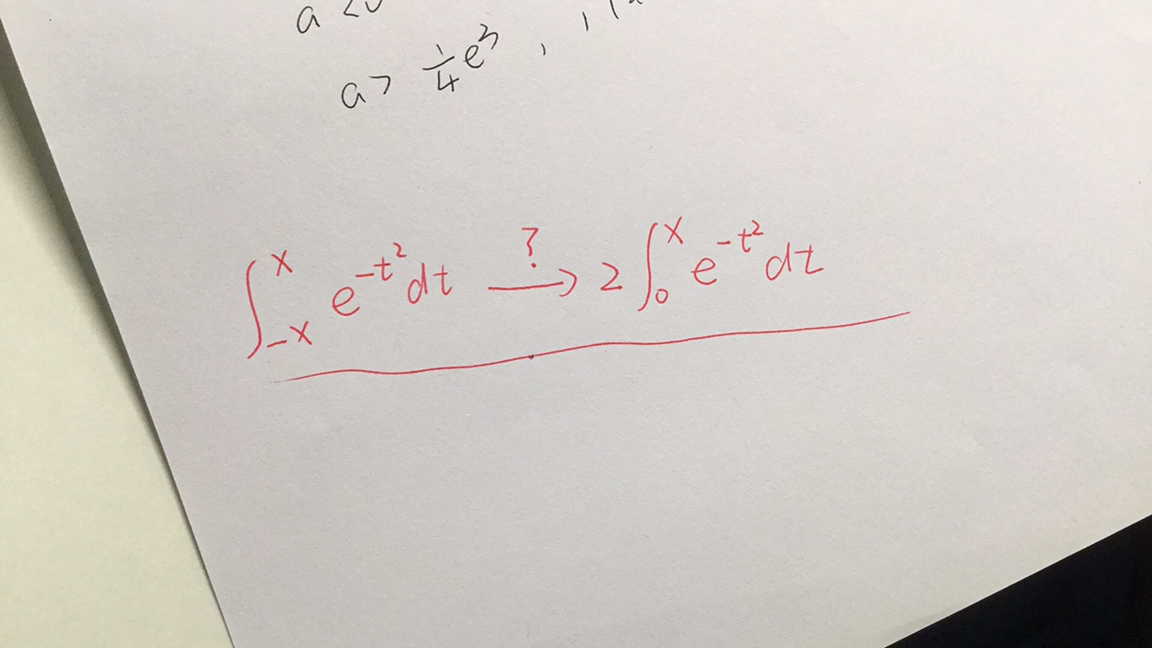 a <
a > 1/4 e³ ,
∫_{-x}^{x} e^{-t²} dt ⟶^{?} 2 ∫_{0}^{x} e^{-t²} dt